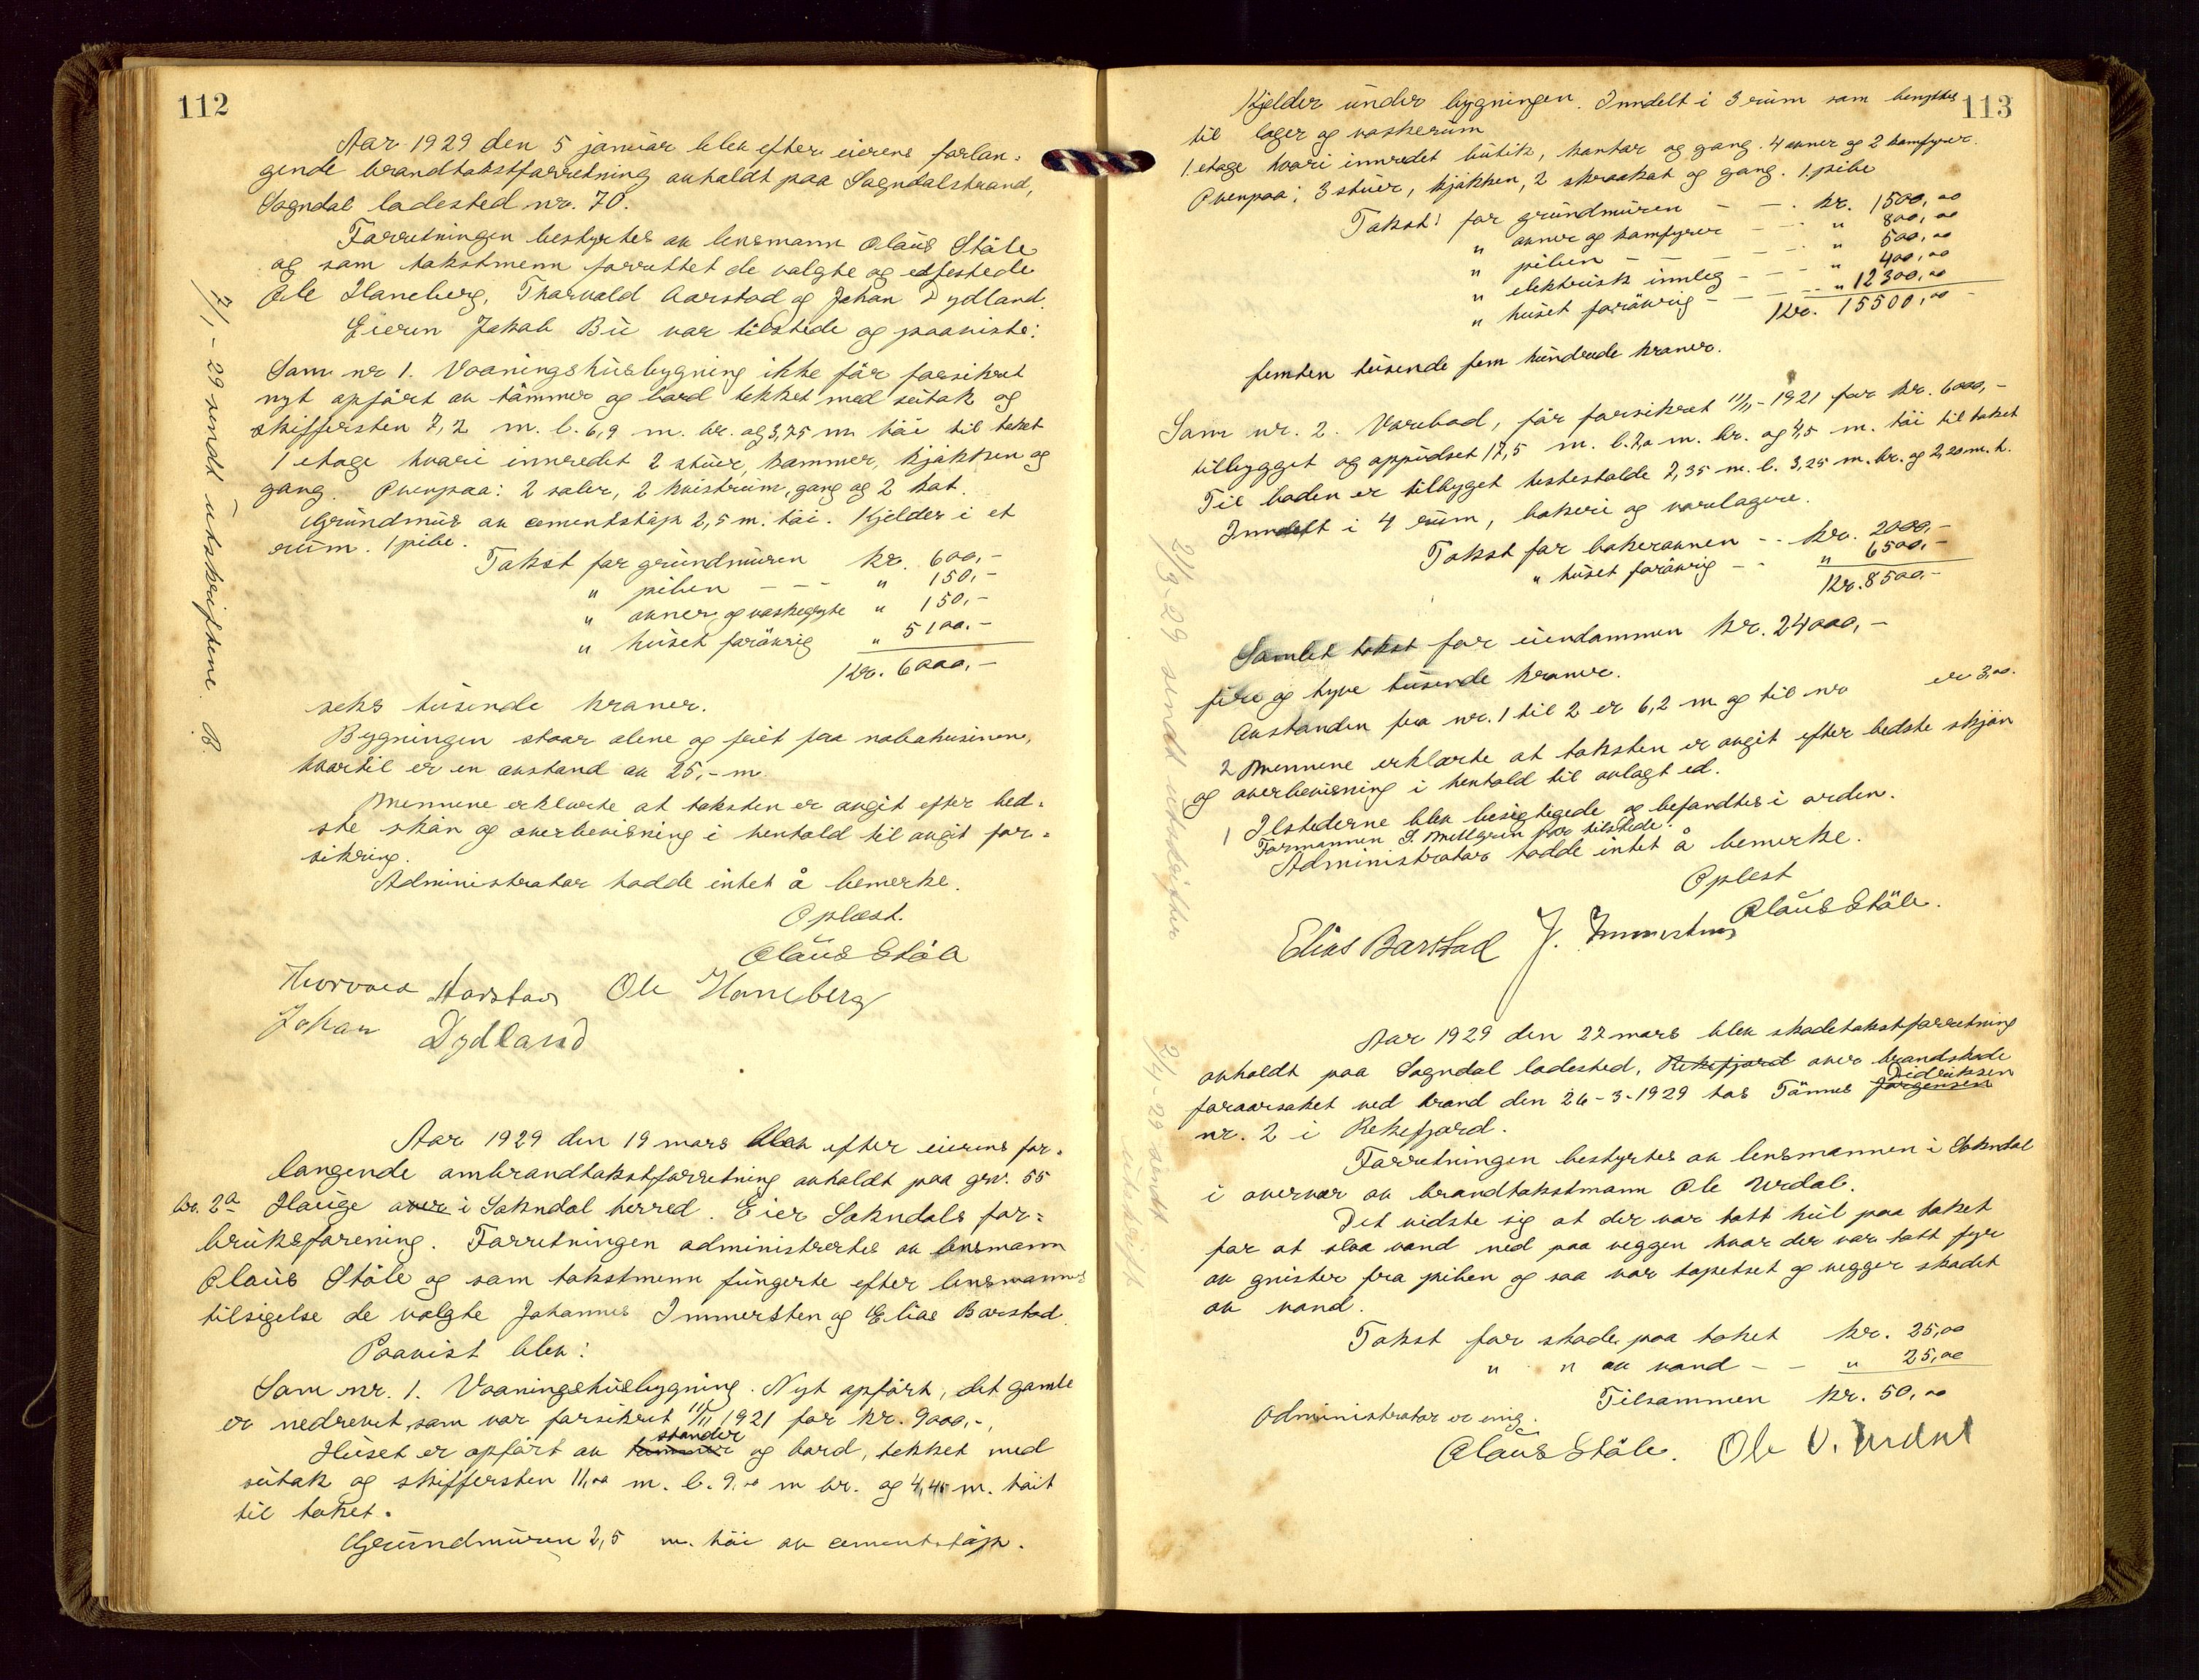 112
Aar 1929 den 5 januar blev efter eierens forlan-
gende brandtakstforretning avholdt paa Sogndalstrand,
Sogndal ladested nr. 70.
Forretningen bestyrtes av lensmann Olaus Stöle
og som takstmenn forrettet de valgte og edfestede
Ole Haneberg, Thorvald Aarstad og Johan Dydland.
Eieren Jakob Bu var tilstede og paaviste:
Som nr 1. Vaaningshusbygning ikke för forsikret
nyt opfört av tömmer og bord tekket med sutak og
skiffersten 7,2 m. l. 6,9 m. br. og 3,75 m höi til taket
1 etage hvori innredet 2 stuer, kammer, kjökken og
gang. Ovenpaa: 2 saler, 2 kvistrum, gang og 2 kot.
Grundmur av cementstöp 2,5 m. höi. Kjelder i et
rum. 1 pibe.
Takst for grundmuren kr. 600,-
" piben - - - " 150,-
" ovner og vaskegryte " 150,-
" huset forövrig " 5100.-
Kr. 6000,-
seks tusende kroner.
Bygningen staar alene og frit fra nabohusene,
hvortil er en avstand av 25,- m.
Mennene erklærte at taksten er avgit efter bed-
ste skön og overbevisning i henhold til avgit for-
sikring.
Administrator hadde intet å bemerke.
Oplæst.
Olaus Stöle
Thorvald Aarstad Ole Haneberg
Johan Dydland
7/1 - 29 sendt utskriftene. B
Aar 1929 den 19 mars blev efter eierens for-
langende ombrandtakstforretning avholdt paa grn. 55
br. 2a Hauge over i Sokndal herred. Eier Sokndals for-
bruksforening. Forretningen administrertes av lensmann
Olaus Stöle og som takstmenn fungerte efter lensmannens
tilsigelse de valgte Johannes Immersten og Elias Barstad.
Paavist blev:
Som nr. 1. Vaaningshusbygning. Nyt opfört, det gamle
er nedrevet, som var forsikret 11/11 1921 for kr. 9000,-,
stender
Huset er opfört av tömmer og bord, tekket med
sutak og skiffersten 11,00 m. l. 9,00 m br. og 4,40 m. höit
til taket.
Grundmuren 2,5 m. höi av cementstöp.
113
Kjelder under bygningen. Inndelt i 3 rum som benyttes
til lager og vaskerum
1. etage hvori innredet butik, kontor og gang. 4 ovner og 2 komfyrer.
Ovenpaa: 3 stuer, kjökken, 2 skraakot og gang. 1. pibe
Takst: for grundmuren - - . kr. 1500,00
" ovner og komfyrer - - " 800,00
" piben - - - - " 500,00
" elektrisk innleg - - - " 400,00
" huset forövrig - - - " 12300,00
Kr. 15500,00
femten tusende fem hundrede kroner.
Som nr. 2. Varebod, för forsikret 11/11 - 1921 for kr. 6000,-
tilbygget og oppudset 17,5 m. l. 7,0 m. br. og 4,5 m. höi til taket
Til boden er tilbyget hestestalde 7,35 m. l. 3,25 m. br. og 2,20 m. h.
Inndelt i 4 rum, bakeri og varelagere.
Takst for bakerovnen - - kr. 2000,-
" huset forövrig - - " 6500,-
Kr. 8500,-
Samlet takst for eiendommen kr. 24000,-
fire og tyve tusende kroner.
Avstanden fra nr. 1 til 2 er 6,2 m og til nr er 3,00.
2 Mennene erklærte at taksten er avgit efter bedste skjön
og overbevisning i henhold til avlagt ed.
1 Ilstederne blev besigtigede og befandtes i orden.
Formannen S. Mellgren var tilstede.
Administrator hadde intet å bemerke.
Oplest
Olaus Stöle.
Elias Barstad J. Immersten
21/3 - 29 sendt utskrifter
Aar 1929 den 27 mars blev skadetakstforretning
avholdt paa Sogndal ladested, Rekefjord over brandskade
Didriksen
foraarsaket ved brand den 26-3-1929 hos Tönnes Jörgensen
nr. 2 i Rekefjord.
Forretningen bestyrtes av lensmannen i Sokndal
i overvær av brandtakstmann Ole Urdal.
Det vidste sig at der var hatt hul paa taket
for at slaa vand ned paa veggen hvor der var tatt fyr
av gnister fra piben og saa var tapetset og vegger skadet
av vand.
Takst for skade paa taket kr. 25,00
" " av vand - - " 25,00
Tilsammen kr. 50,00
Administrator er enig.
Olaus Stöle. Ole O. Urdal
2/4 - 29 sendt utskrift